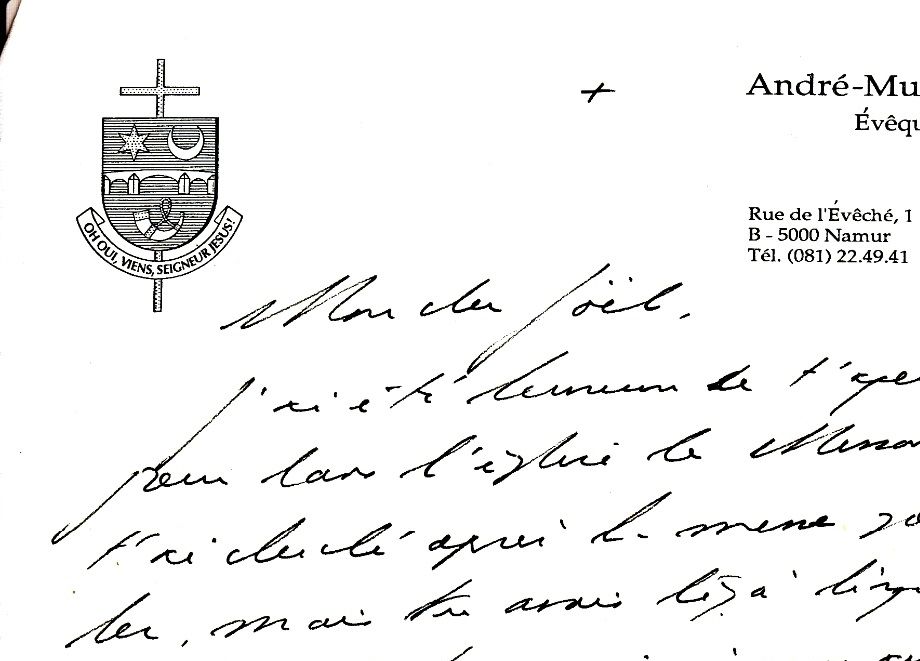 +
André-Mu
Évêqu
Rue de l'Évêché, 1
B - 5000 Namur
Tél. (081) 22.49.41
OH OUI, VIENS, SEIGNEUR JESUS!
Mon cher Joël,
J'ai été heureux de t'ape
dans l'église de
t'ai cherché après la messe
ler, mais tu avais déjà